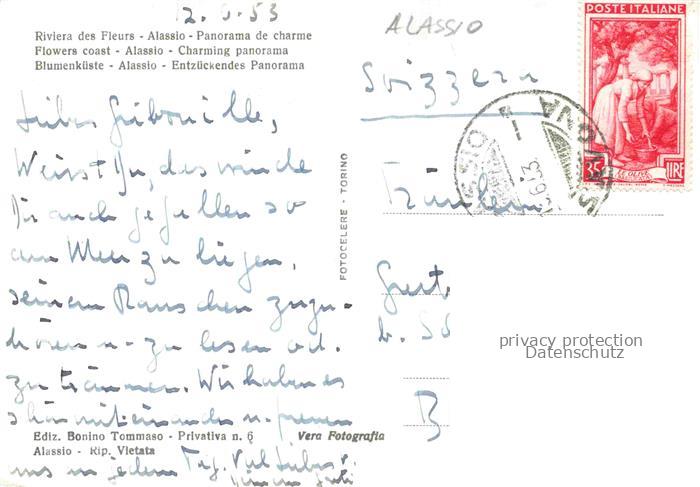 12.6.53
ALASSIO
Riviera des Fleurs - Alassio - Panorama de charme
Flowers coast - Alassio - Charming panorama
Blumenküste - Alassio - Entzückendes Panorama
POSTE ITALIANE
35 LIRE
Svizzera
Fräulein
FOTOCELERE - TORINO
Weisst Du, das würde
Dir auch gefallen so
am Meer zu liegen,
seinem Rauschen zuzu-
hören u. zu lesen od.
zu träumen. Wir haben es
schön miteinander u. freuen
uns in jedem Tag. Viel Liebes
privacy protection
Datenschutz
B
Ediz. Bonino Tommaso - Privativa n. 6
Vera Fotografia
Alassio - Rip. Vietata